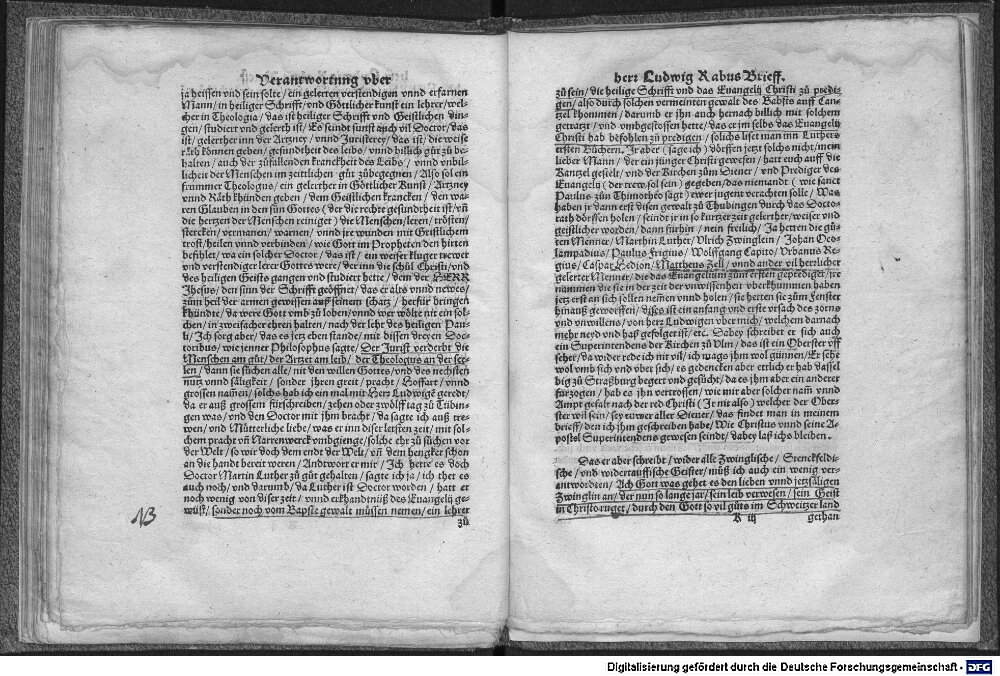 Verantwortung vber
ja heissen vnd sein solte / ein gelerten verstendigen vnnd erfarnen
Mann / in heiliger Schrifft / vnd Göttlicher kunst ein lehrer / wel-
cher in Theologia / das ist heiliger Schrifft vnd Geistlichen din-
gen / studiert vnd gelerth ist / Es seindt sunst auch vil Doctor / das
ist / gelerther inn der Artzney / vnnd Juristerey / das ist / die weise
räth können geben / gesundtheit des leibs / vnnd billich gůt zů be-
halten / auch der zůfallenden kranckheit des Leibs / vnnd vnbil-
licheit der Menschen im zeitlichen gůt zůbegegnen / Also sol ein
frummer Theologus / ein gelerther in Göttlicher Kunst / Artzney
vnnd Räth khünden geben / dem Geistlichen krancken / den wa-
ren Glauben in den sůn Gottes (der die recht gesundtheit ist / vn̄
die hertzen der Menschen reiniget) die Menschen / leren / trösten /
stercken / vermanen / warnen / vnnd jre wunden mit Geistlichem
trost / heilen vnnd verbinden / wie Gott im Propheten den hirten
befihlet / wa ein solcher Doctor / das ist / ein weiser kluger trewer
vnd verstendiger lerer Gottes were / der inn die schůl Christi / vnd
des heiligen Geists gangen vnd studiert hette / dem der HERR
Jhesus / den sinn der Schrifft geöffnet / das er alts vnnd newes /
zům heil der armen gewissen auß seinem schatz / herfür bringen
khündte / da were Gott vmb zů loben / vnnd wer wölte nit ein sol-
chen / in zweifacher ehren halten / nach der lehr des heiligen Pau-
li / Jch sorg aber / das es jetz eben stande / mit dissen dreyen Doc-
toribus / wie jenner Philosophus sagte / Der Jurist verderbt die
Menschen am gůt / der Artzet am leib / der Theologus an der see-
len / dann sie sůchen alle / nit den willen Gottes / vnd des nechsten
nutz vnnd säligkeit / sonder jhren greit / pracht / Hoffart / vnnd
grossen nam̄en / solchs hab ich ein mal mit Herr Ludwigē geredt /
da er auß grossem fürschreiben / zehen oder zwölff tag zů Tübin-
gen was / vnd den Doctor mit jhm bracht / da sagte ich auß trew-
en / vnd Můtterliche liebe / was er inn diser letsten zeit / mit sol-
chem pracht vn̄ Narrenwerck vmbgienge / solche ehr zů sůchen vor
der Welt / so wir doch dem endt der Welt / vn̄ dem hengker schon
an die handt bereit weren / Andtwort er mir / Jch hette es doch
Doctor Martin Luther zů gůt gehalten / sagte ich ja / ich thet es
auch noch / vnd darumb / da Luther ist Doctor worden / hatt er
noch wenig von diser zeit / vnnd erkhandtniß des Euangelij ge-
wüst / sonder noch vom Bapste gewalt müssen nemen / ein lehrer
zů
13
herr Ludwig Rabus Brieff.
zů sein / die heilige Schrifft vnd das Euangelij Christi zů predi-
gen / also durch solchen vermeinten gewalt des Babsts auff Can-
tzel khommen / darumb er jhn auch hernach billich mit solchem
getratzt / vnd vmbgestossen hette / das er jm selbs das Euangelij
Christi hab befohlen zů predigen / solichs liset man inn Luthers
ersten Büchern. Jr aber (sage ich) dörffen jetz solchs nicht / mein
lieber Mann / der ein jünger Christi gewesen / hatt euch auff die
Kantzel gestelt / vnd der Kirchen zům Diener / vnd Prediger des
Euangelij (der trew sol sein) gegeben / das niemandt (wie sanct
Paulus zům Thimotheo sagt) ewer jugent verachten solle / Was
haben jr dann erst disen gewalt zů Thübingen durch das Docto-
rath dörffen holen / seindt jr in so kurtzer zeit gelerther / weiser vnd
geistlicher worden / dann fürhin / nein freilich / Ja hetten die gů-
ten Menner / Marthin Luther / Vlrich Zwinglein / Johan Oeco-
lampadius / Paulus Frigius / Wolffgang Capito / Vrbanus Re-
gius / Caspar Hedion / Mattheus Zell / vnnd ander vil herrlicher
gelerter Menner / die das Euangelium zům ersten geprediget / je
nammen die sie in der zeit der vnwissenheit vberkhummen haben
jetz erst an sich sollen nem̄en vnnd holen / sie hetten sie zům Fenster
hinauß geworffen / dises ist ein anfang vnd erste vrsach des zorns
vnd vnwillens / von herr Ludwigen vber mich / welchem darnach
mehr neyd vnd haß gefolget ist / etc. Dabey schreibet er sich auch
ein Superintendens der Kirchen zů Vlm / das ist ein Oberster vff
seher / da wider rede ich nit vil / ich mags jhm wol günnen / Er sehe
wol vmb sich vnd vber sich / es gedencken aber ettlich er hab dassel
big zů Straßburg begert vnd gesůcht / da es jhm aber ein anderer
fürzogen / hab es jhn vertrossen / wie mir aber solcher nam̄ vnnd
Ampt gefalt nach der red Christi (Jr nit also) welcher der Ober-
ster wil sein / sey ewer aller Diener / das findet man in meinem
brieff / den ich jhm geschriben habe / Wie Christus vnnd seine A-
postel Superintendens gewesen seindt / dabey laß ichs bleiben.
Das er aber schreibt / wider alle Zwinglische / Stenckfeldi-
sche / vnd widertauffische Geister / můß ich auch ein wenig ver-
antwordten / Ach Gott was gehet es den lieben vnnd jetzsäligen
Zwinglin an / der nun so lange jar / sein leib verwesen / sein Geist
in Christo ruget / durch den Gott so vil gůts im Schweitzer land
B iij
gethan
Digitalisierung gefördert durch die Deutsche Forschungsgemeinschaft - DFG